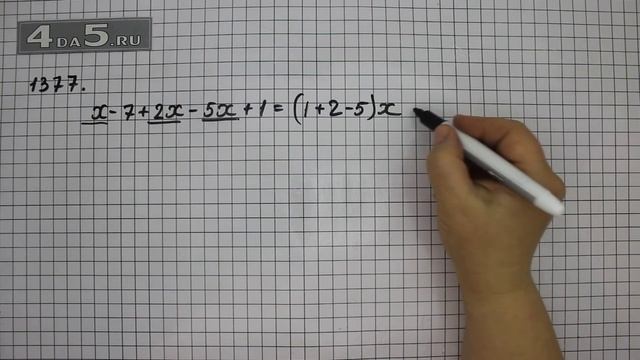 4DA5.RU
1377.
x - 7 + 2x - 5x + 1 = (1 + 2 - 5)x